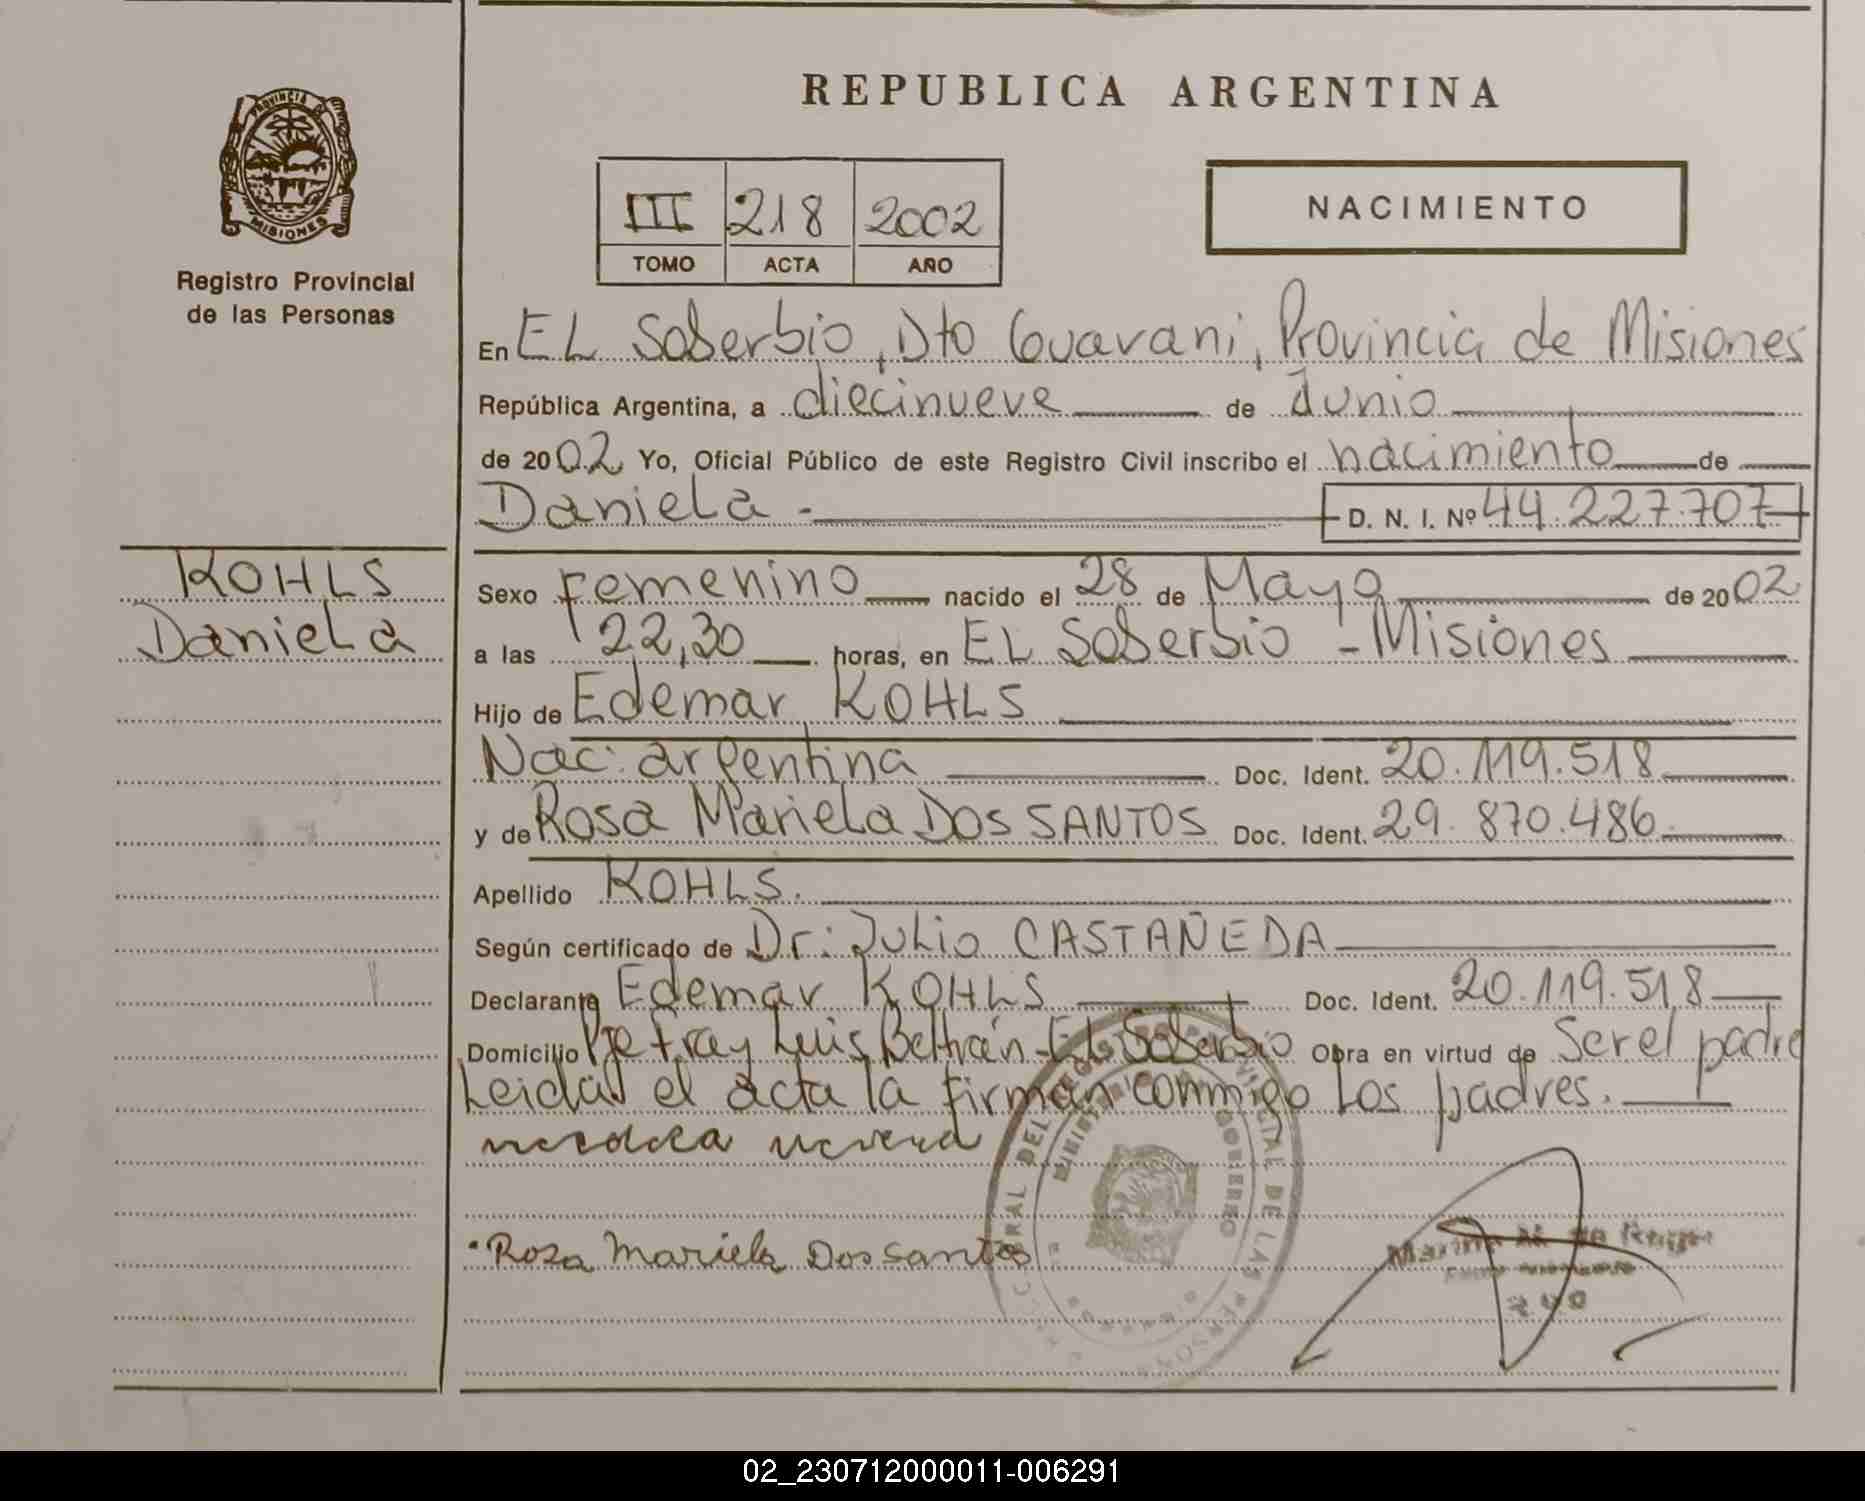 REPUBLICA ARGENTINA
PROVINCIA DE
MISIONES
Registro Provincial
de las Personas
III 218 2002
TOMO ACTA AÑO
NACIMIENTO
En EL Soberbio, Dto Guarani, Provincia de Misiones
República Argentina, a diecinueve de Junio
de 2002 Yo, Oficial Público de este Registro Civil inscribo el nacimiento de
Daniela - D. N. I. Nº 44.227.707
KOHLS
Daniela
Sexo Femenino nacido el 28 de Mayo de 2002
a las 22,30 horas, en EL Soberbio - Misiones
Hijo de Edemar KOHLS
Nac: argentina Doc. Ident. 20.119.518
y de Rosa Mariela DOS SANTOS Doc. Ident. 29.870.486
Apellido KOHLS.
Según certificado de Dr: Julio CASTAÑEDA
Declarante Edemar KOHLS Doc. Ident. 20.119.518
Domicilio Pje Fray Luis Beltrán - EL Soberbio Obra en virtud de Ser el padre
Leida el acta la firman conmigo Los padres.
Rosa Mariela Dos Santos
DEL REGISTRO PROVINCIAL DE LAS PERSONAS
MINISTERIO DE GOBIERNO
02_230712000011-006291